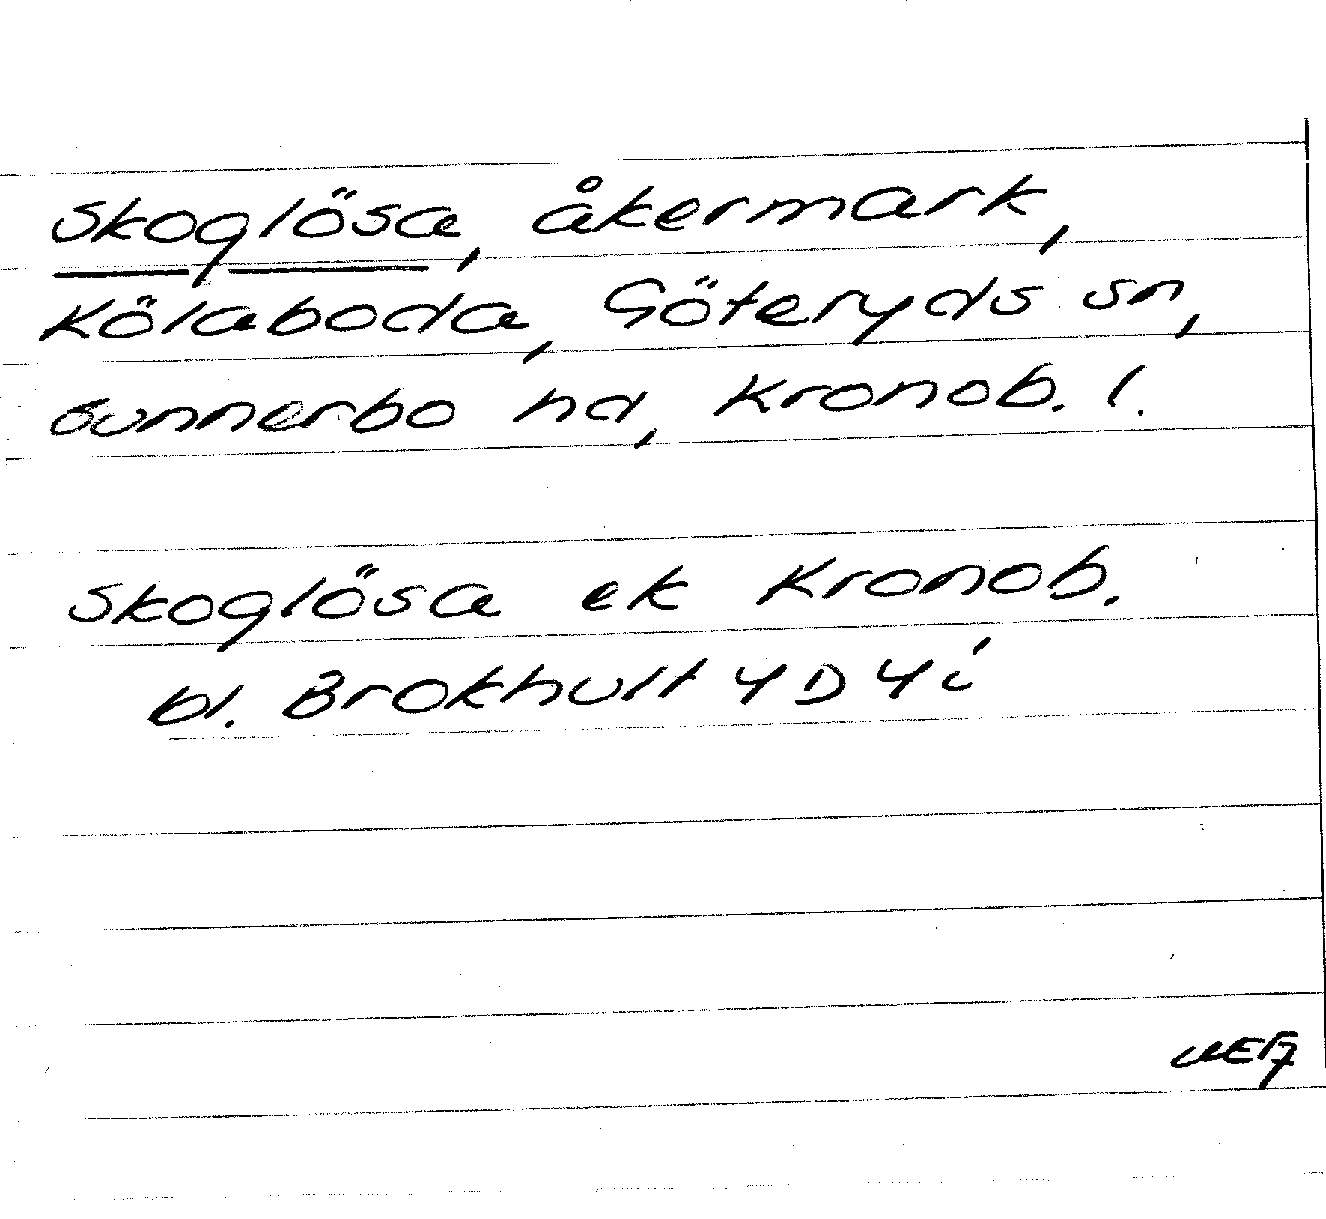 Skoglösa, åkermark,
Kölaboda, Göteryds sn,
Sunnerbo hd, Kronob. l.
Skoglösa ek Kronob.
bl. Brokhult 4D4i